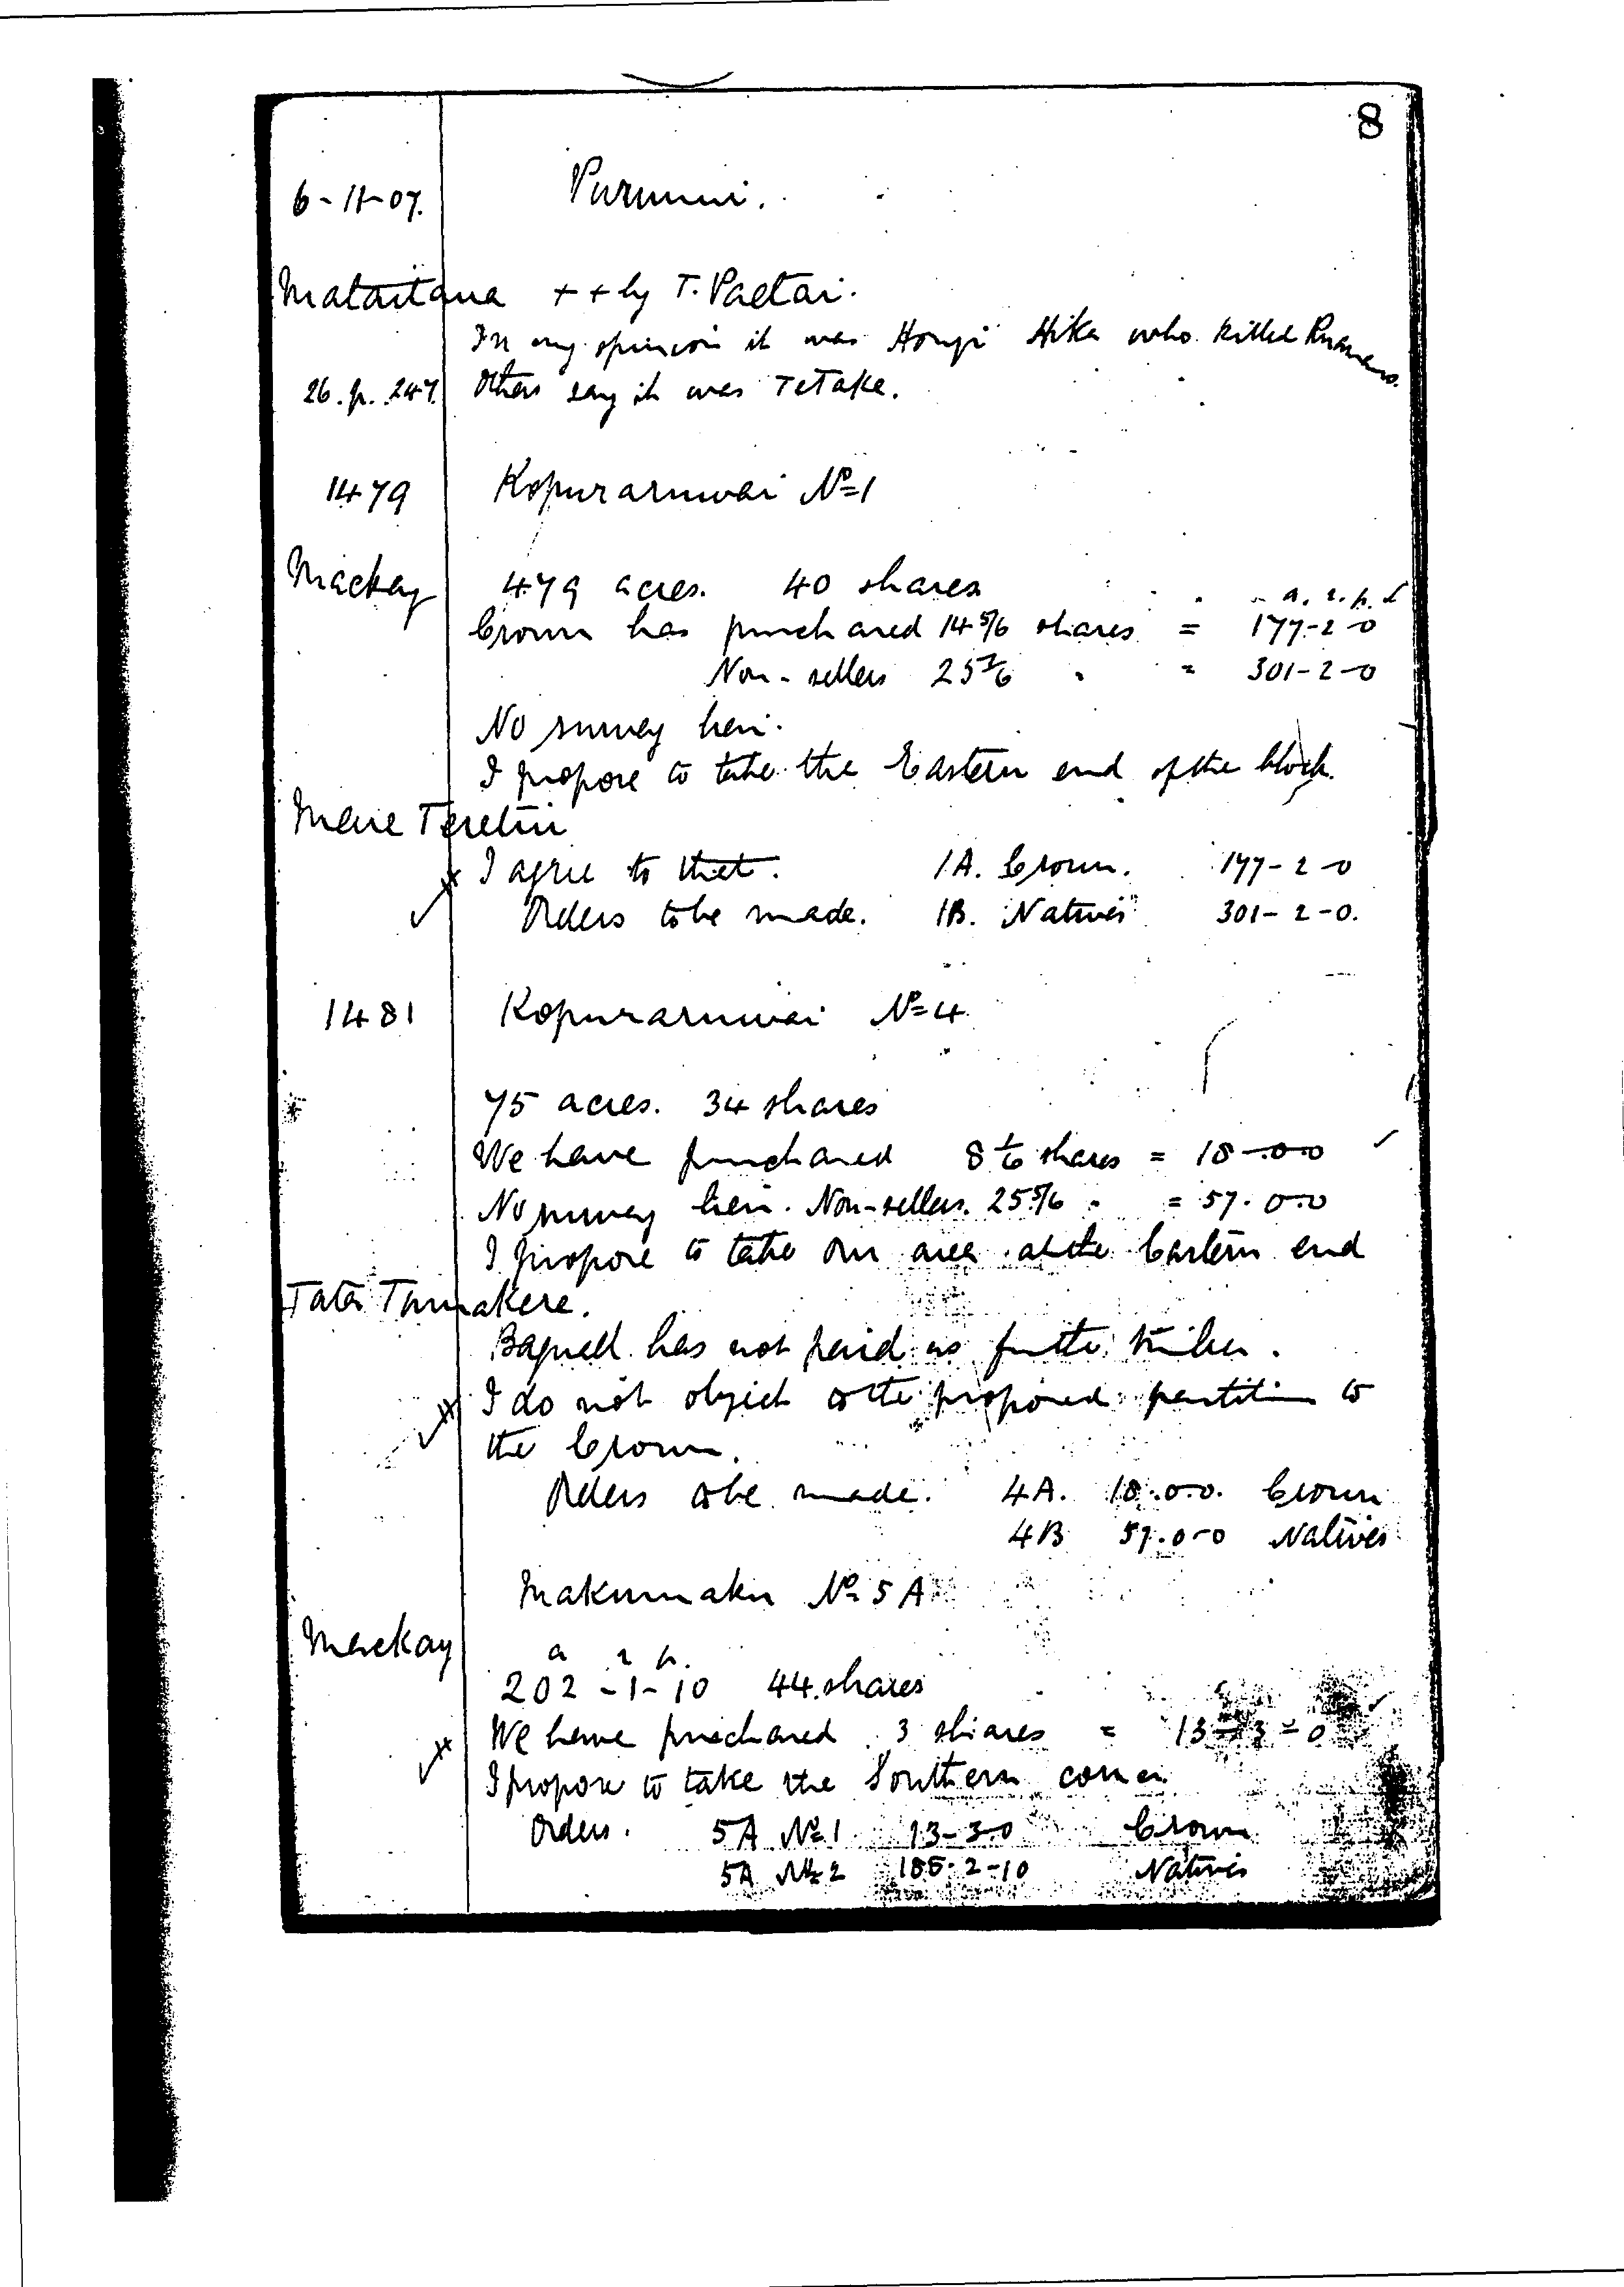 8
6-11-07. Purunui.
Mataitaua ++ by T. Paetai.
In my opinion it was Hongi Hika who killed
26. p. 247. Others say it was TeTake.
1479 Kopuraruwai No 1
Mackay 479 acres. 40 shares a. r. p.
Crown has purchased 14 5/6 shares = 177-2-0
Non-sellers 25 1/6 " = 301-2-0
No survey lien.
I propose to take the Eastern end of the block.
Mere Teretiu
I agree to that. 1A. Crown. 177-2-0
Orders to be made. 1B. Natives 301-2-0.
1481 Kopuraruwai No 4
75 acres. 34 shares
We have purchased 8 1/6 shares = 18-0-0
No survey lien. Non-sellers. 25 5/6 " = 57.0-0
I propose to take our area at the Eastern end
Tata Tamakere.
Bagnall has not paid us for the timber.
I do not object to the proposed partition to
the Crown.
Orders to be made. 4A. 18.0.0. Crown
4B 57.0-0 Natives
Makumaku No 5A
Mackay a r p.
202-1-10 44 shares
We have purchased 3 shares = 13-3-0
I propose to take the Southern corner
Orders. 5A No 1 13-3-0 Crown
5A No 2 188-2-10 Natives